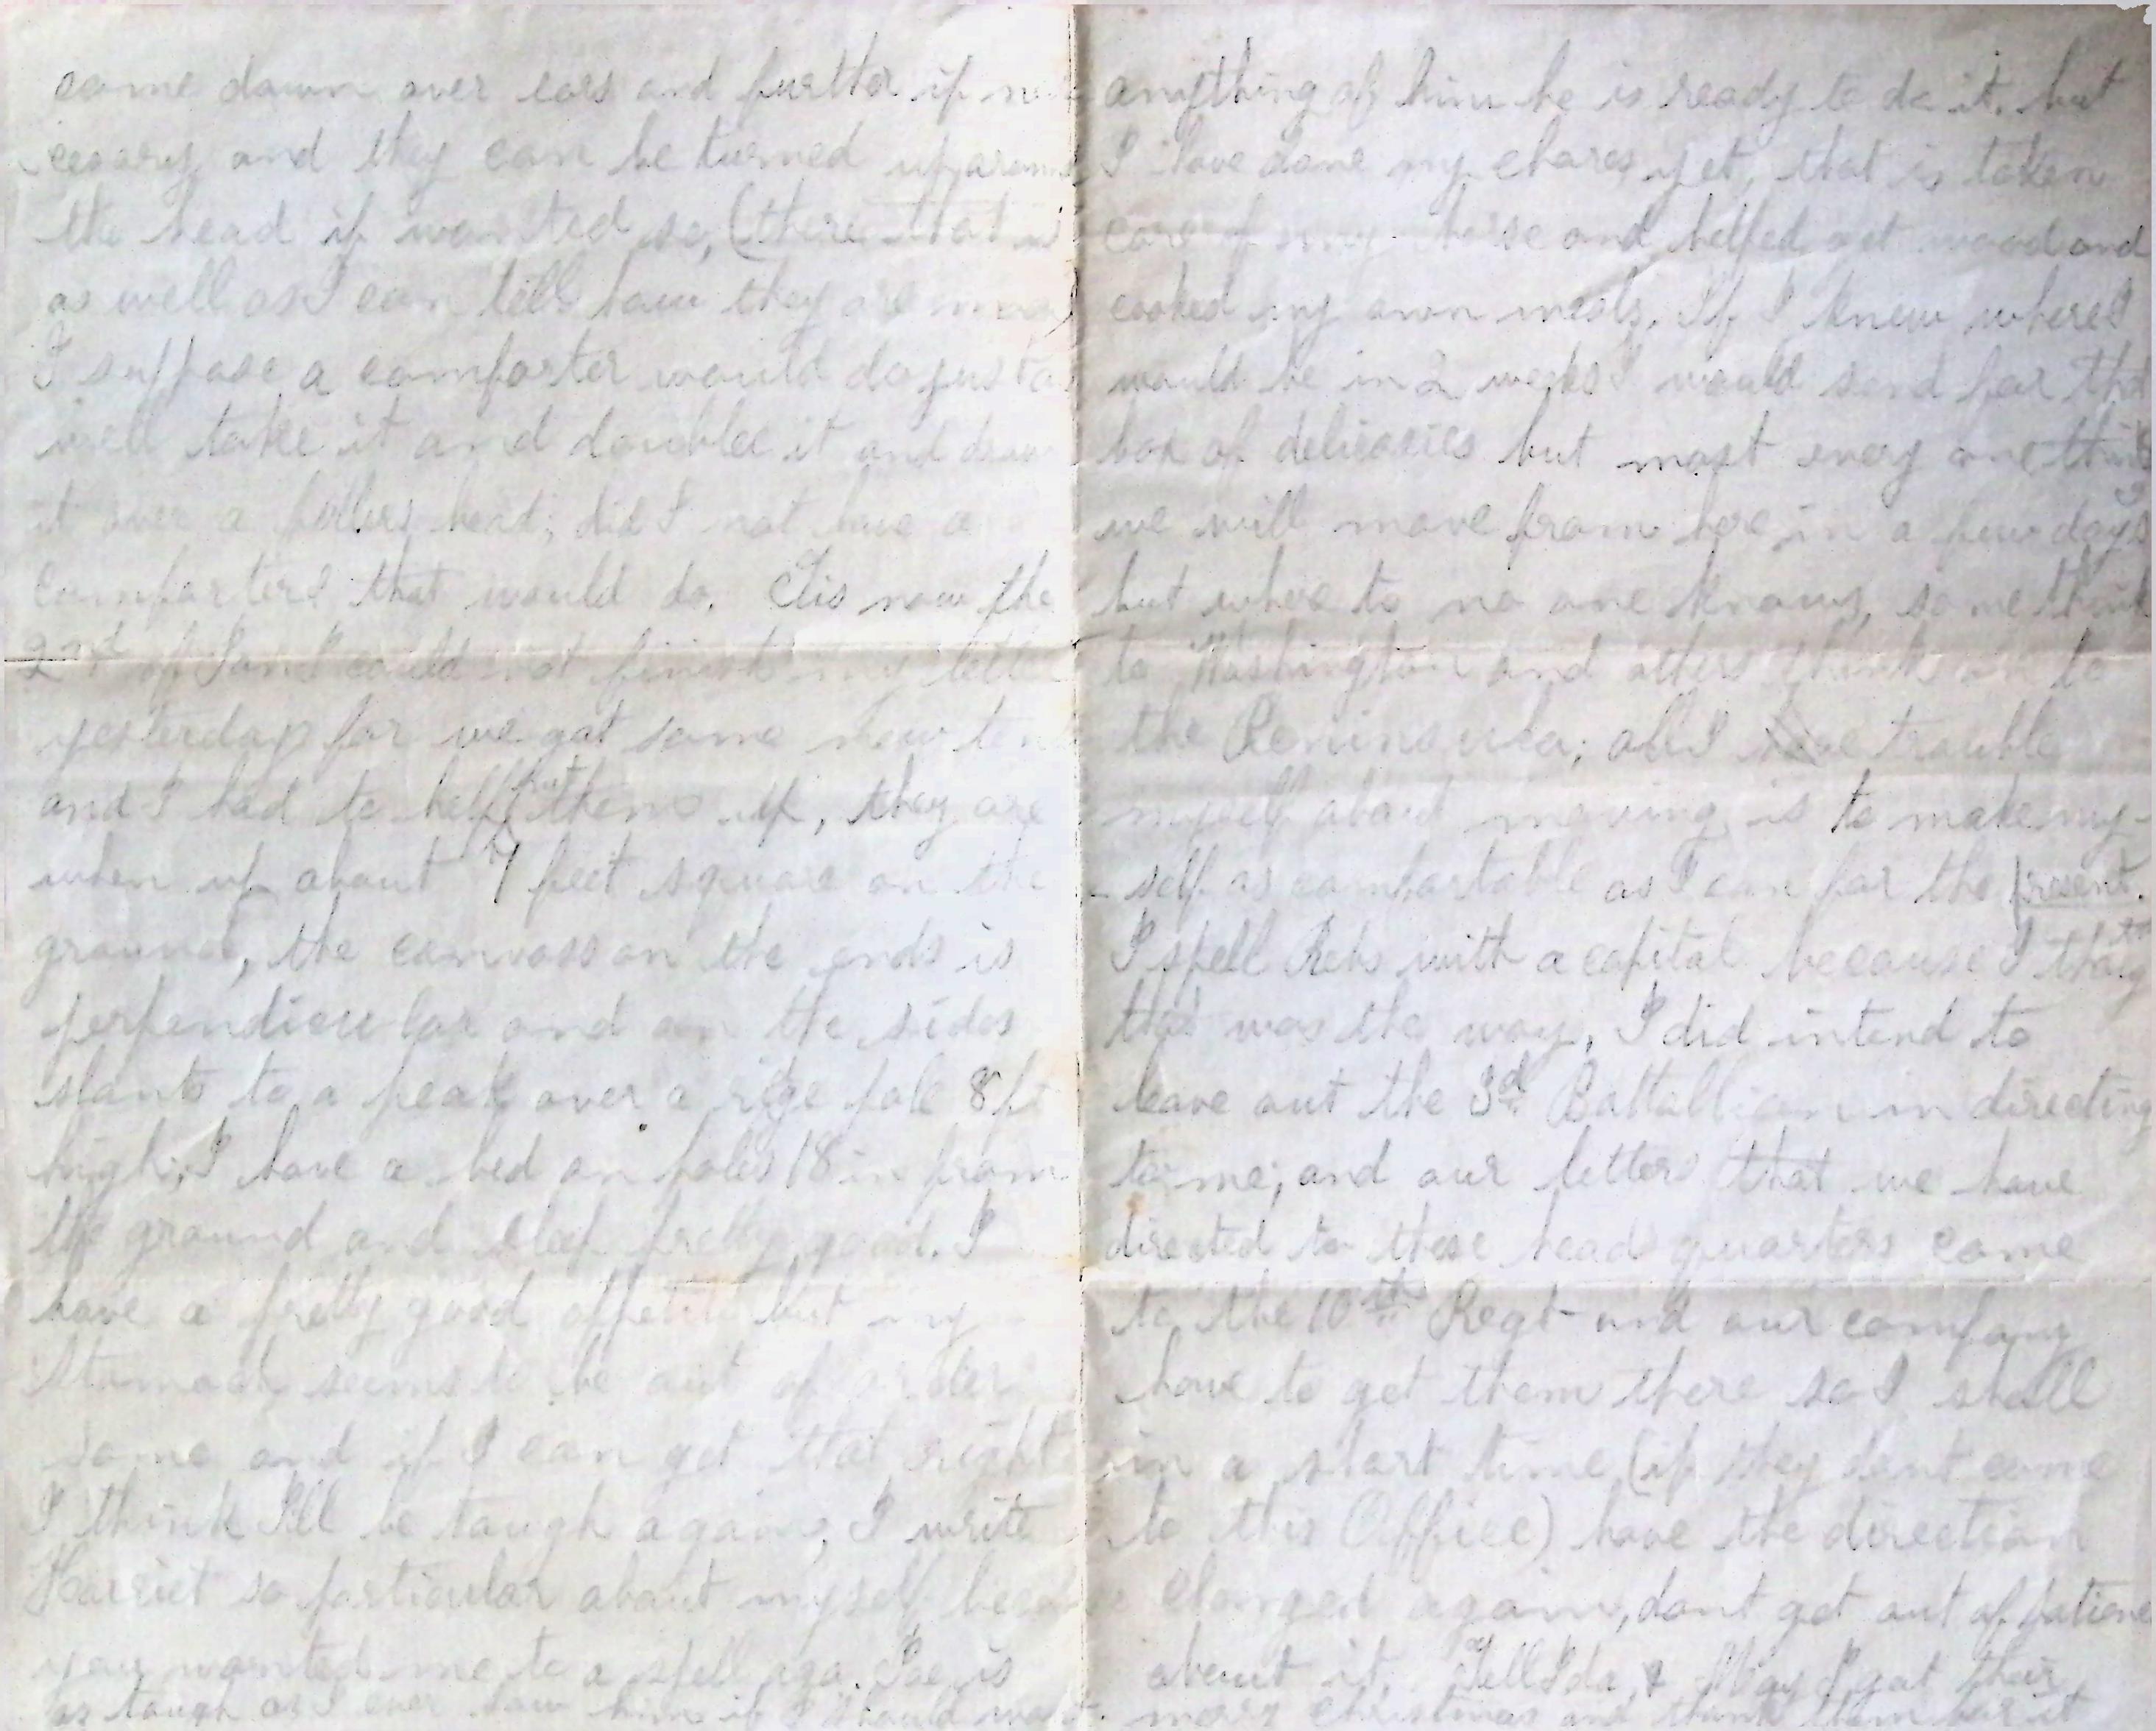 come down over ears and further if ne
cessary and they can be turned up around
the head if wanted so, (there that is
as well as I can tell how they are made)
I suppose a comforter would do just as
well take it and doublee it and draw
it over a fellers head; did I not have a
comforters that would do. Tis now the
22nd of Jan I could not finish my letter
yesterday for we got some new tents
and I had to help put them up, they are
when up about 7 feet square on the
ground, the canvass on the ends is
perpendicular and on the sides
slants to a peak over a rige pole 8 ft
high, I have a bed on poles 18 in from
the ground and sleep pretty good. I
have a pretty good appetite but my
stomach seems to be out of order
some and if I can get that right
I think Ill be tough again, I write
Harriet so particular about myself because
you wanted me to a spell ago. Joe is
as tough as I ever saw him if I should want
anything of him he is ready to do it. but
I have done my chores yet, that is taken
care of my horse and helped get wood and
cooked my own meals, If I knew where I
would be in 2 weeks I would send for that
box of delicasies but most every one think
we will move from here in a few days
but where to no one knows, some think
to Washington and others think on to
the Peninsula; all I trouble
myself about moving is to make my-
-self as comfortable as I can for the present.
I spell Rebs with a capital because I thought
that was the way, I did intend to
leave out the 3d Battallion in directing
to me; and our letters that we have
directed to these head quarters come
to the 10th Regt and our company
have to get them there so I shall
in a short time (if they dont come
to this Office) have the direction
changed again, dont get out of patience
about it. Tell Ida & May I got their
merry Christmas and thank them for it